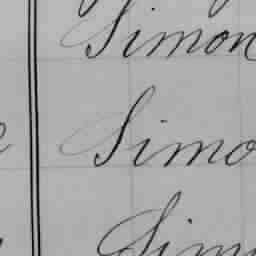 Simon
Simo
Sim